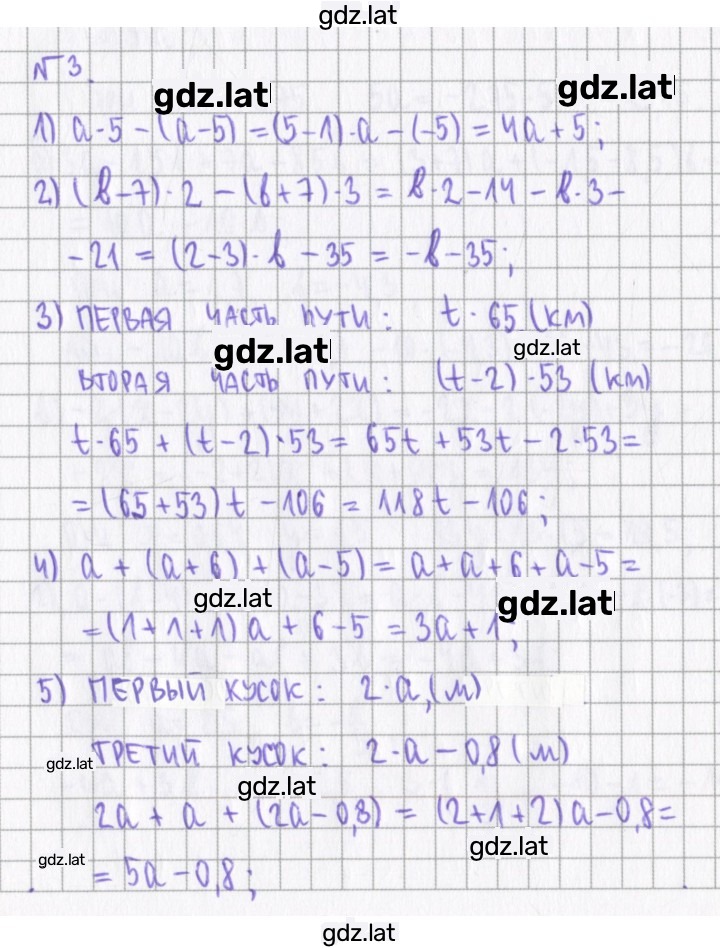 gdz.lat
№ 3.
gdz.lat gdz.lat
1) a·5 - (a-5) = (5-1)·a - (-5) = 4a + 5;
2) (b-7)·2 - (b+7)·3 = b·2 - 14 - b·3 -
- 21 = (2-3)·b - 35 = -b - 35;
3) ПЕРВАЯ ЧАСТЬ ПУТИ: t · 65 (КМ)
gdz.lat gdz.lat
ВТОРАЯ ЧАСТЬ ПУТИ: (t-2)·53 (КМ)
t·65 + (t-2)·53 = 65t + 53t - 2·53 =
= (65+53)t - 106 = 118t - 106;
4) a + (a+6) + (a-5) = a + a + 6 + a - 5 =
gdz.lat gdz.lat
= (1+1+1)a + 6 - 5 = 3a + 1;
5) ПЕРВЫЙ КУСОК: 2·a, (М)
ТРЕТИЙ КУСОК: 2·a - 0,8 (М)
gdz.lat
gdz.lat
2a + a + (2a - 0,8) = (2+1+2)a - 0,8 =
gdz.lat
gdz.lat
= 5a - 0,8;
gdz.lat